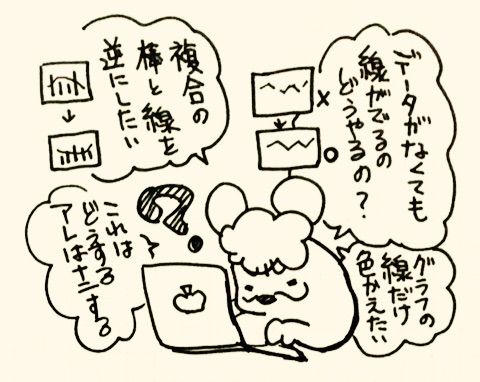 データがなくても
線がでるの
どうやるの？
複合の
棒と線を
逆にしたい
グラフの
線だけ
色かえたい
これは
どうする
アレはナニする